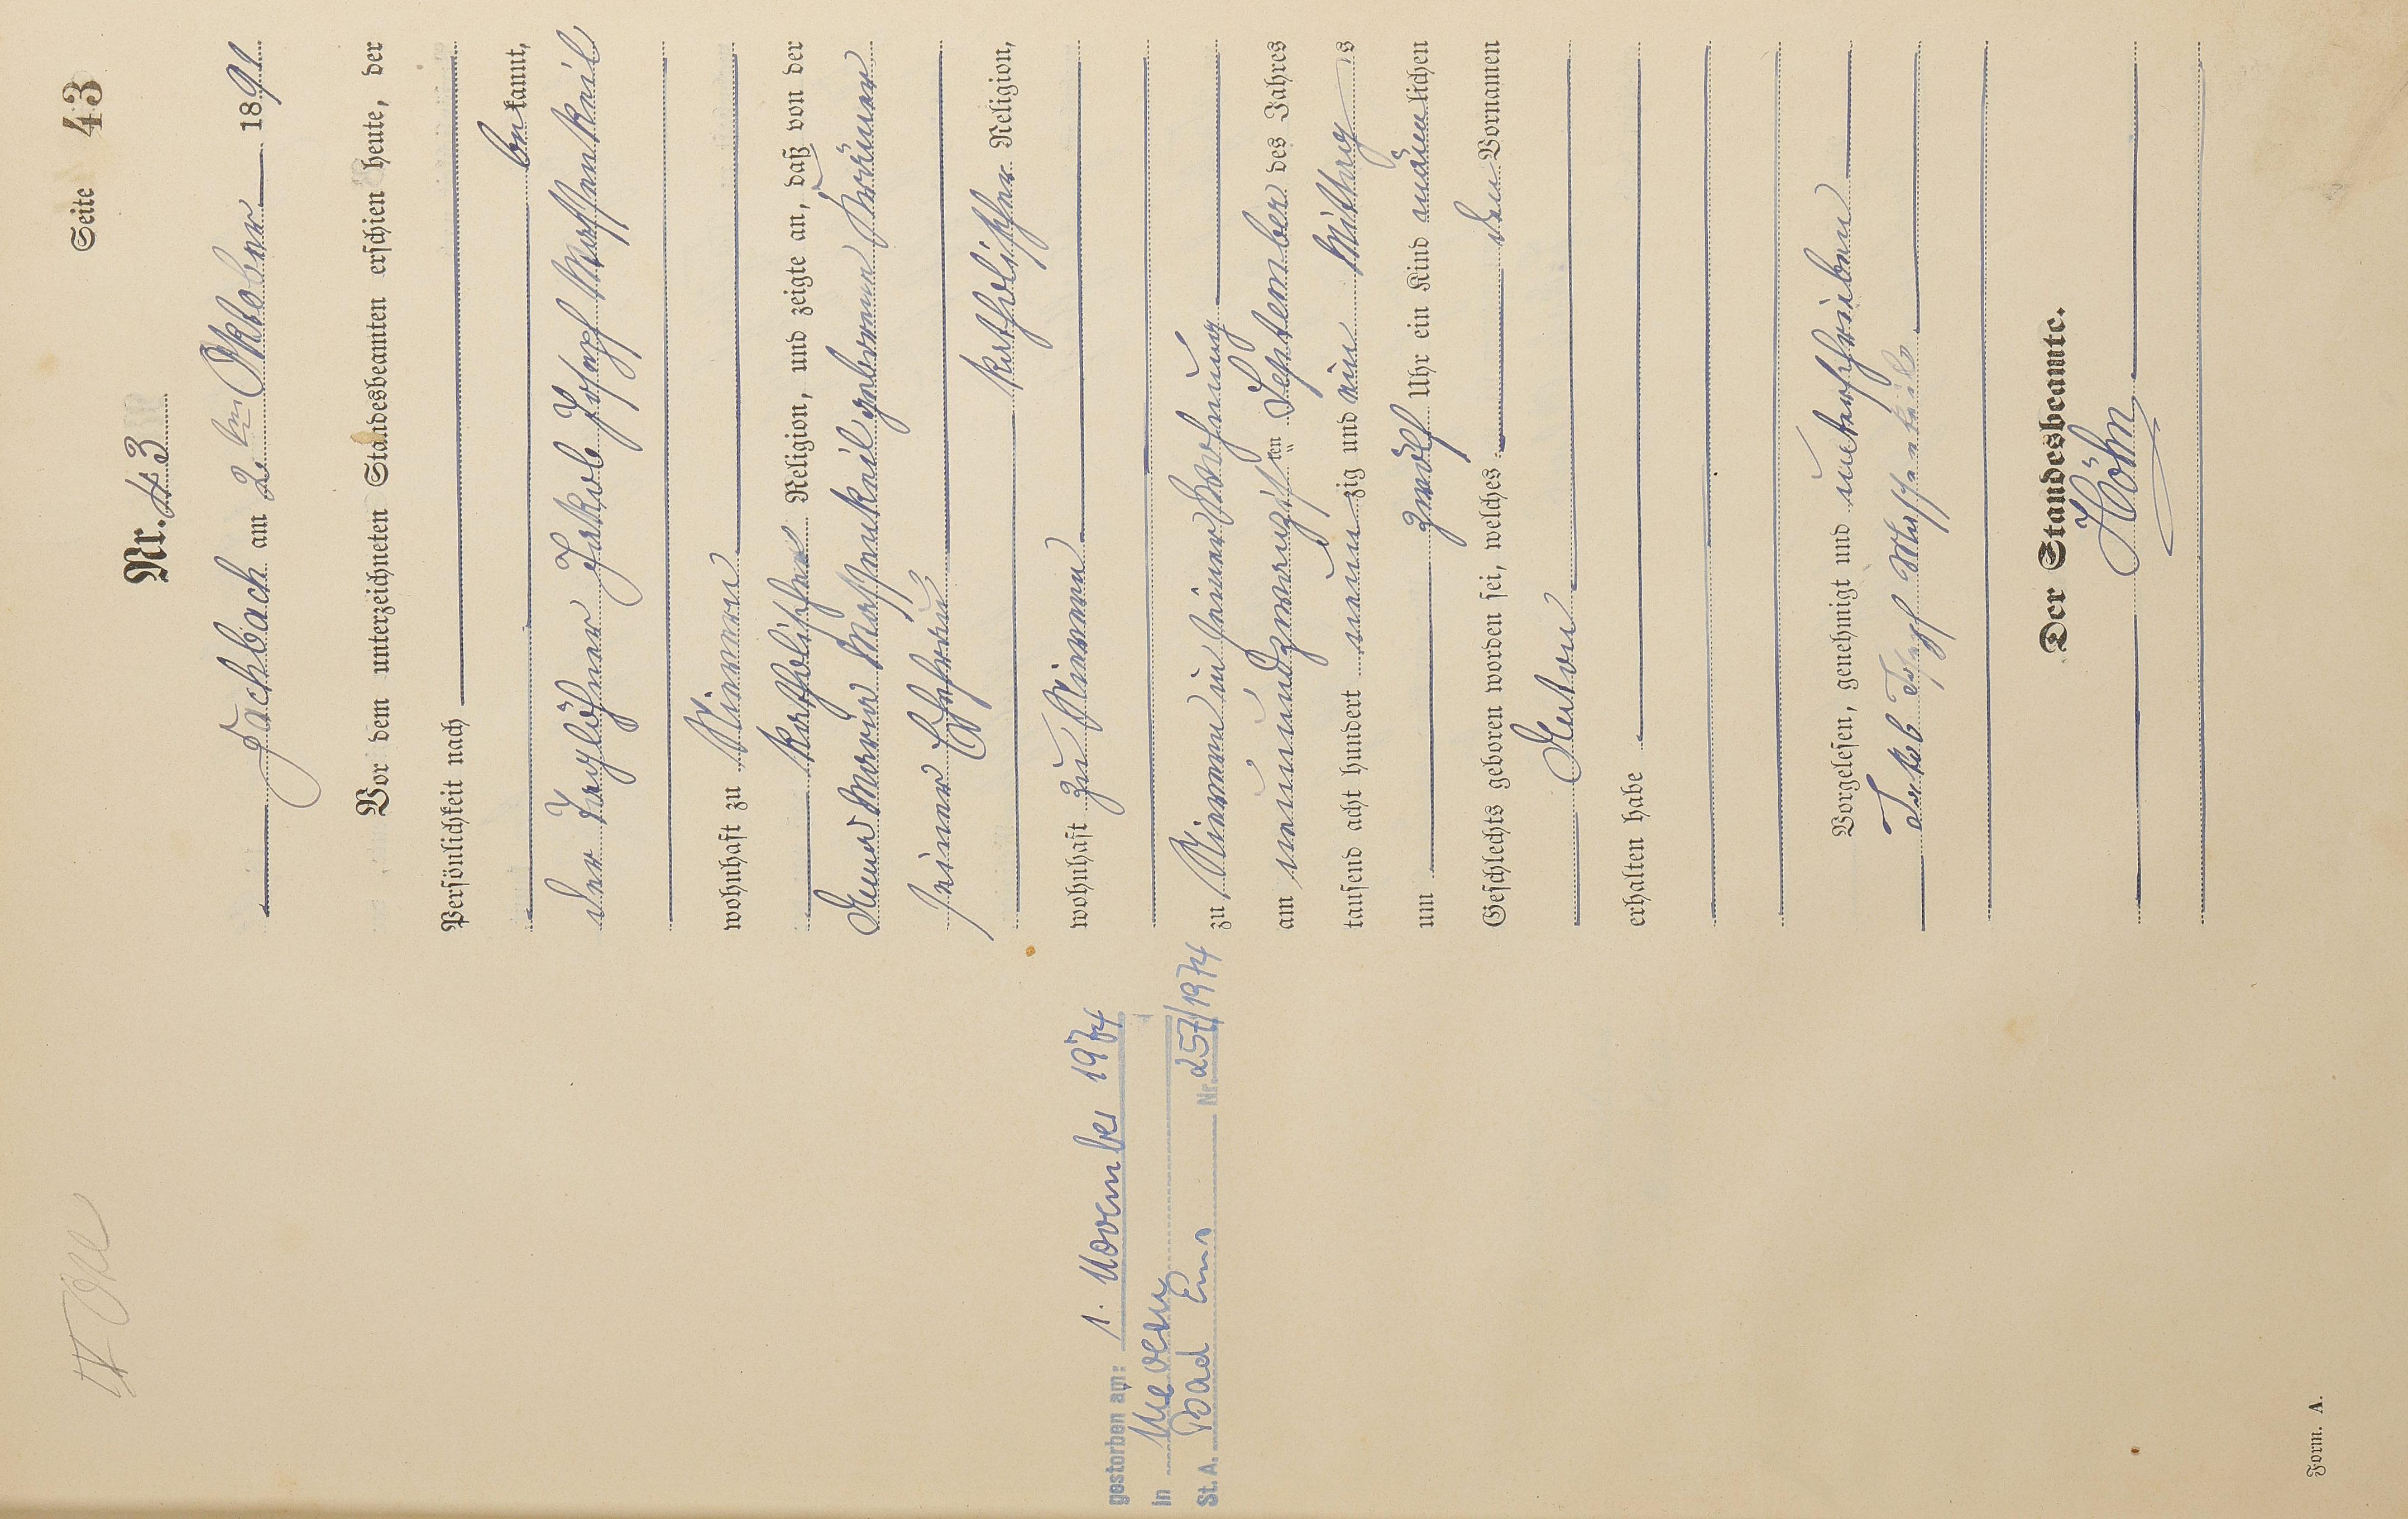 Seite 43
Nr. 43
Fachbach am 2ten Oktober 1891
Vor dem unterzeichneten Standesbeamten erschien heute, der
Persönlichkeit nach
bekannt,
der Taglöhner Jakob Josef Massenkeil
wohnhaft zu Nievern
katholischer Religion, und zeigte an, daß von der
Anna Maria Massenkeil geborenen
seiner Ehefrau
katholischer Religion,
wohnhaft zu Nievern
zu Nievern in seiner Wohnung
am neunundzwanzigsten September des Jahres
tausend acht hundert neunzig und ein Mittags
um zwölf Uhr ein Kind männlichen
Geschlechts geboren worden sei, welches den Vornamen
Anton
erhalten habe
Vorgelesen, genehmigt und unterschrieben
Jakob Josef Massenkeil
Der Standesbeamte.
Höhn
gestorben am: 1. November 1974
in Nievern
St. A. Bad Ems Nr. 257/1974
Form. A.